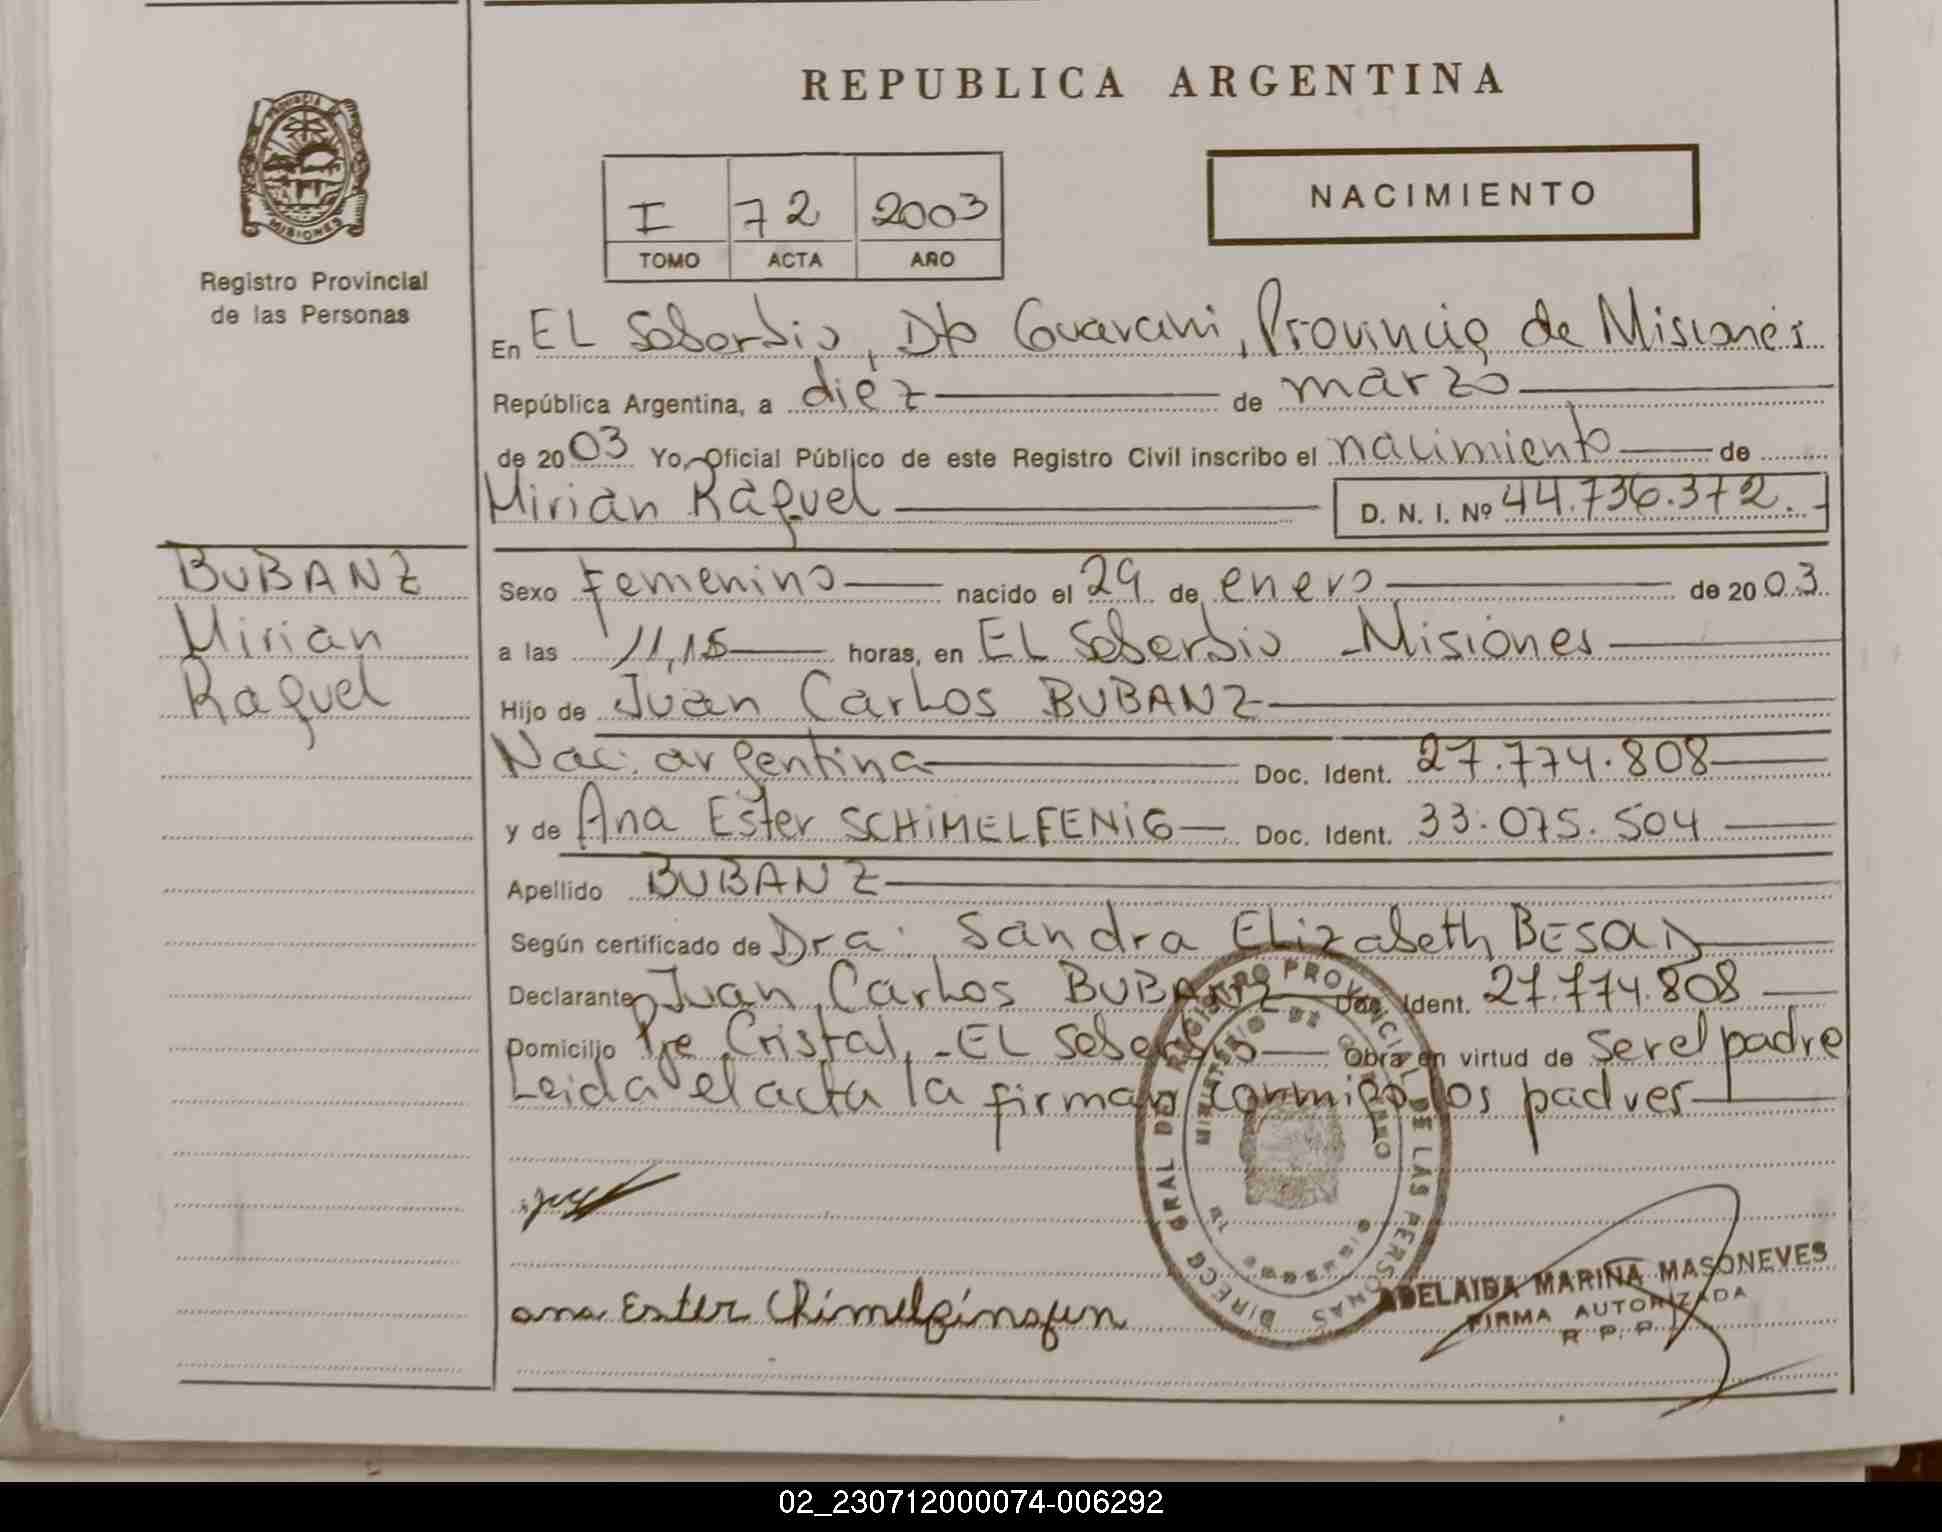 REPUBLICA ARGENTINA
PROVINCIA DE
MISIONES
Registro Provincial
de las Personas
NACIMIENTO
I 72 2003
TOMO ACTA AÑO
En EL Soberbio, Dto Guarani, Provincia de Misiones
República Argentina, a diez de marzo
de 2003 Yo, Oficial Público de este Registro Civil inscribo el nacimiento de
Mirian Raquel D. N. I. Nº 44.736.372.
BUBANZ
Mirian
Raquel
Sexo Femenino nacido el 29 de enero de 2003
a las 11,15 horas, en EL Soberbio - Misiones
Hijo de Juan Carlos BUBANZ
Nac. argentina Doc. Ident. 27.774.808
y de Ana Ester SCHIMELFENIG Doc. Ident. 33.075.504
Apellido BUBANZ
Según certificado de Dra. Sandra Elizabeth BESAD
Declarante Juan Carlos BUBANZ Doc. Ident. 27.774.808
Domicilio Pje Cristal, - EL Soberbio Obra en virtud de ser el padre
Leida el acta la firman conmigo los padres
DIRECC GRAL DEL REGISTRO PROVINCIAL DE LAS PERSONAS
MINISTERIO DE GOBIERNO
MISIONES
ana Ester Chimelfinqun
ADELAIDA MARINA MASONEVES
FIRMA AUTORIZADA
R. P. P.
02_230712000074-006292